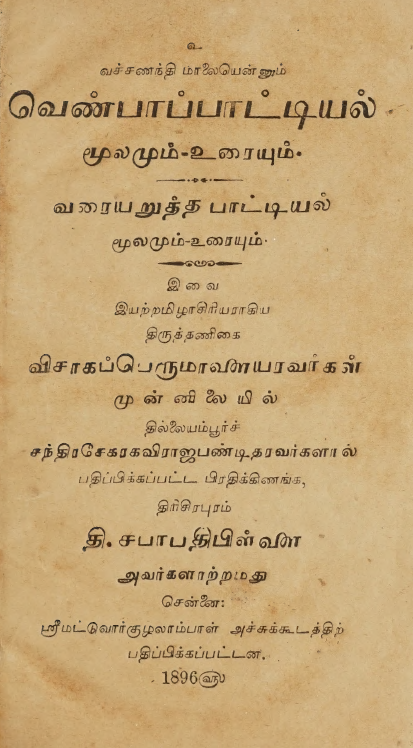 உ
வச்சணந்தி மாலையென்னும்
வெண்பாப்பாட்டியல்
மூலமும்-உரையும்.
வரையறுத்த பாட்டியல்
மூலமும்-உரையும்.
இவை
இயற்றமிழாசிரியராகிய
திருத்தணிகை
விசாகப்பெருமாளையரவர்கள்
முன்னிலையில்
தில்லையம்பூர்ச்
சந்திரசேகரகவிராஜபண்டிதரவர்களால்
பதிப்பிக்கப்பட்ட பிரதிக்கிணங்க,
திரிசிரபுரம்
தி. சபாபதிபிள்ளை
அவர்களாற்றமது
சென்னை:
ஸ்ரீமட்டுவார்குழலாம்பாள் அச்சுக்கூடத்திற்
பதிப்பிக்கப்பட்டன.
1896௵